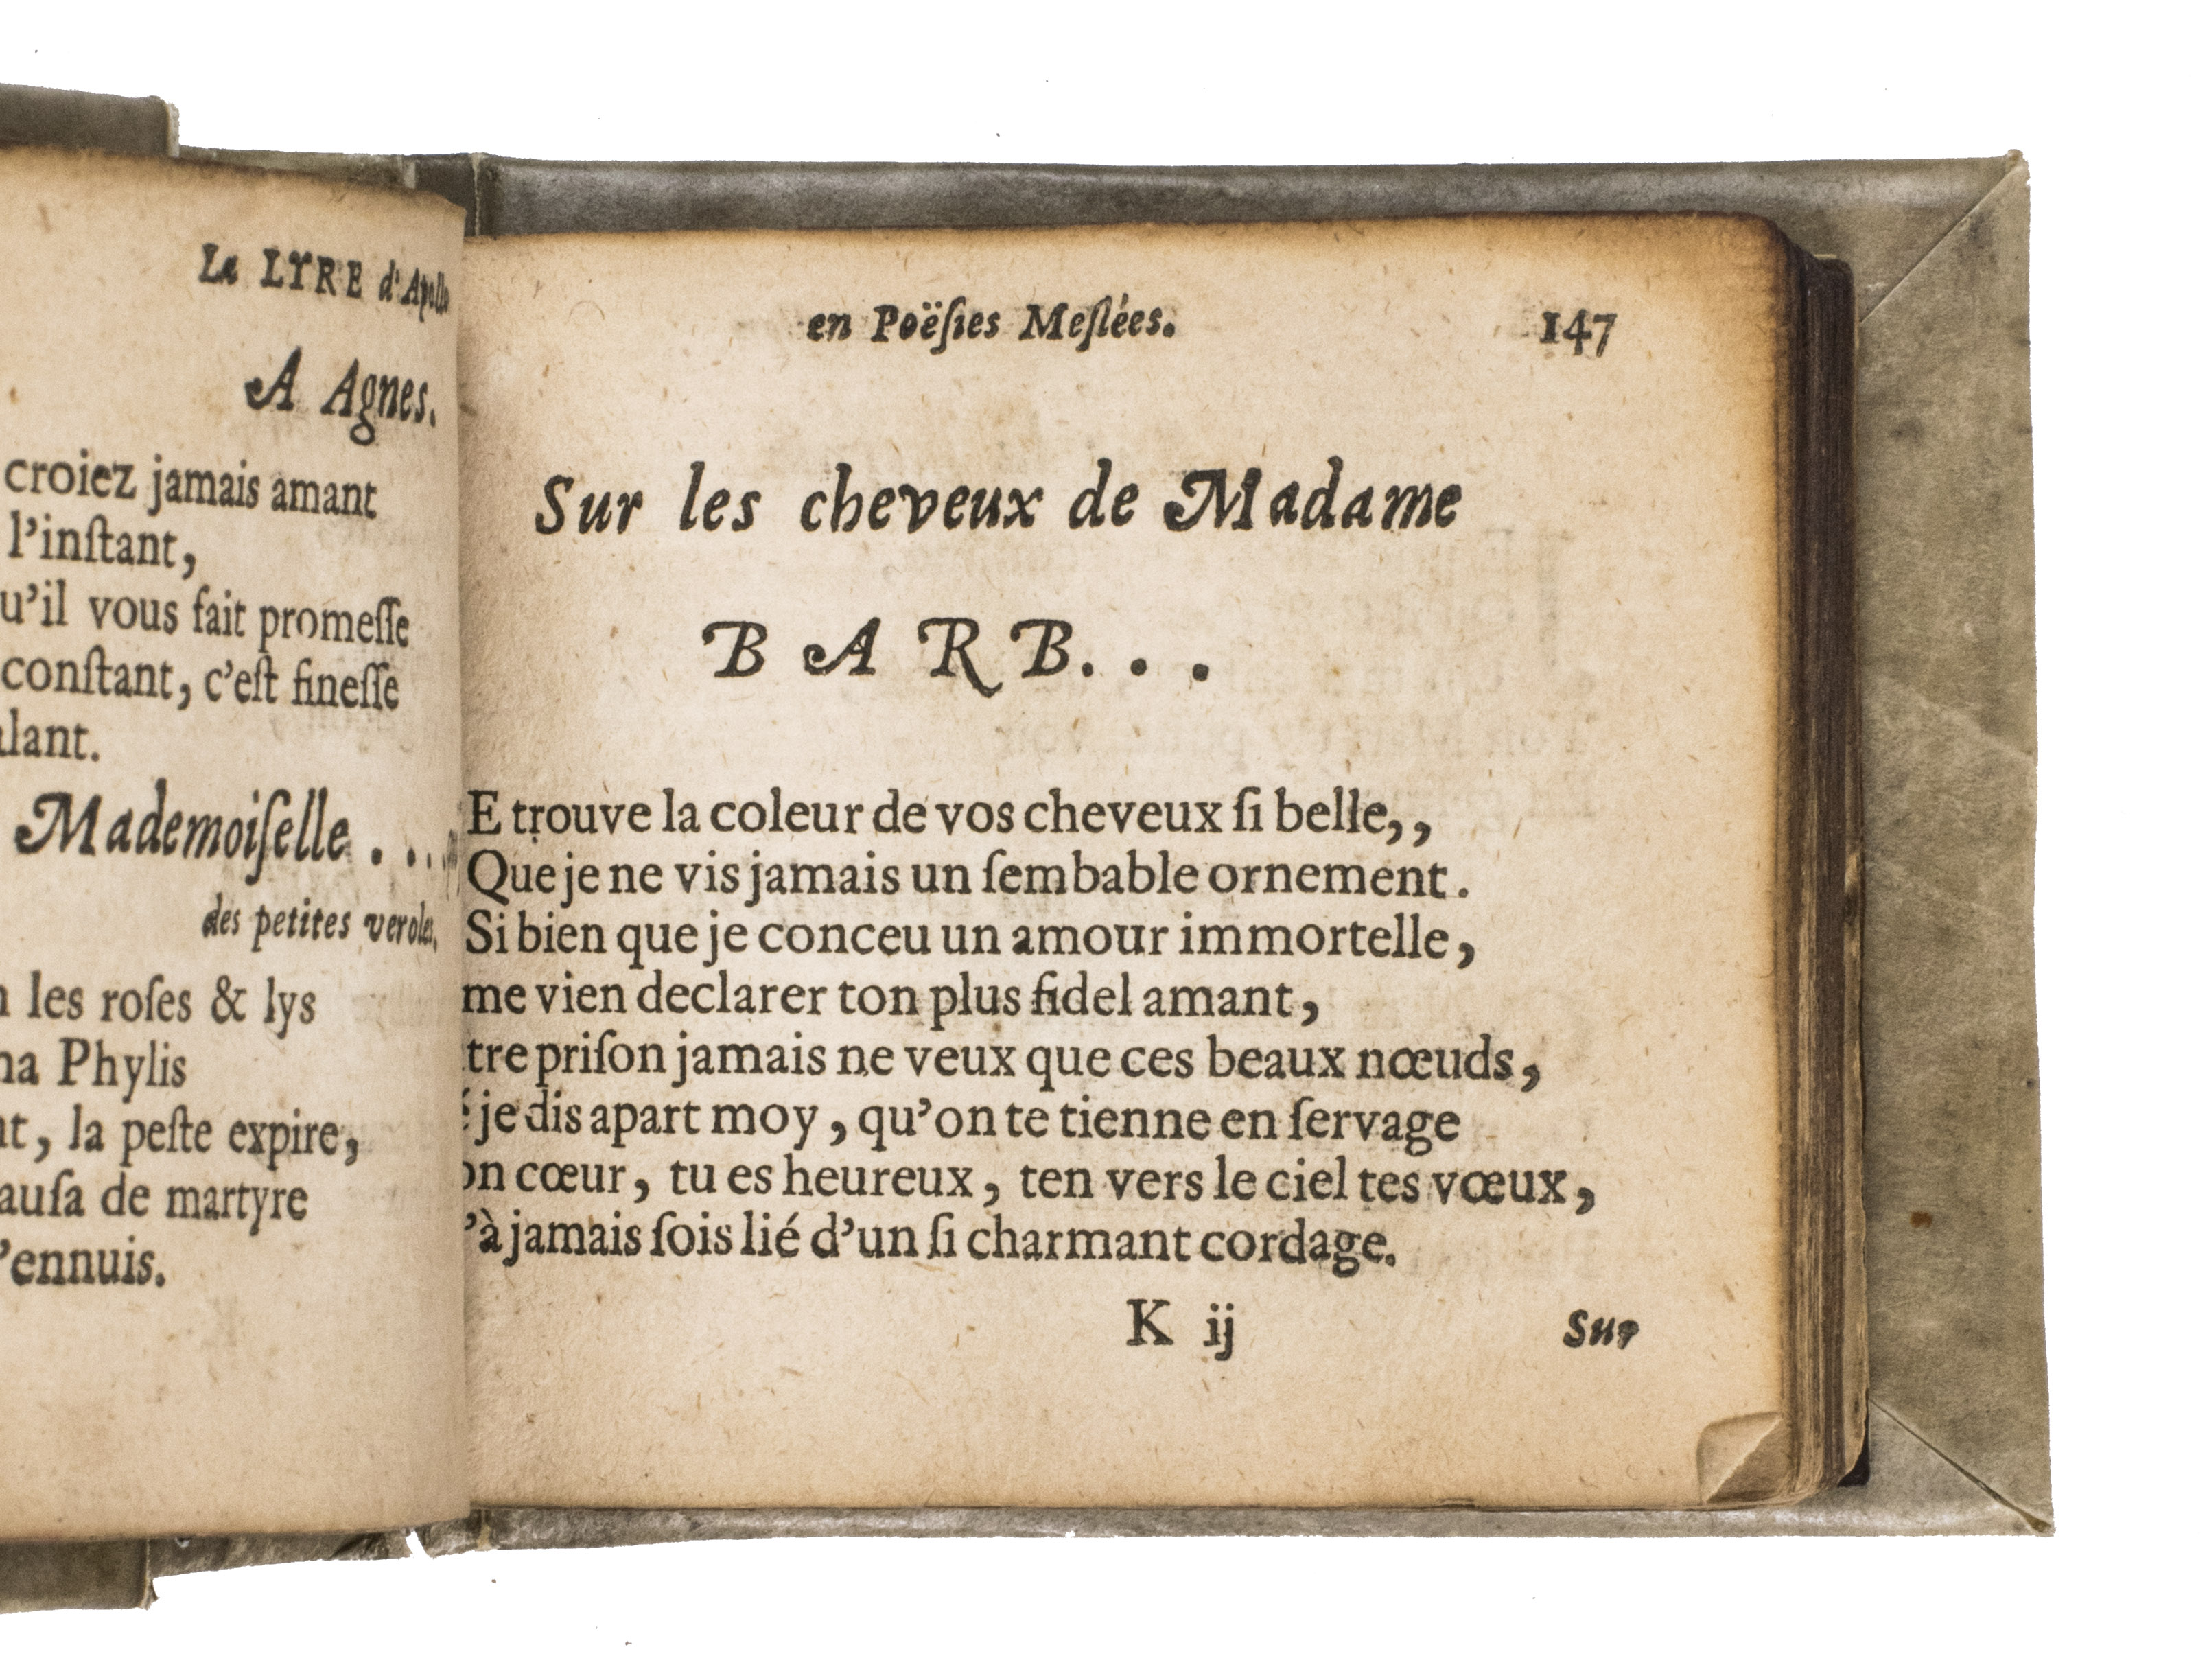 La LYRE d'Apollo
A Agnes.
croiez jamais amant
l'inſtant,
u'il vous fait promeſſe
conſtant, c'eſt fineſſe
lant.
Mademoiſelle . . .
des petites veroles.
les roſes & lys
na Phylis
nt, la peſte expire,
auſa de martyre
'ennuis.
en Poëſies Meſlées. 147
Sur les cheveux de Madame
BARB. . .
E trouve la coleur de vos cheveux ſi belle,,
Que je ne vis jamais un ſembable ornement.
Si bien que je conceu un amour immortelle,
me vien declarer ton plus fidel amant,
tre priſon jamais ne veux que ces beaux nœuds,
je dis apart moy, qu'on te tienne en ſervage
on cœur, tu es heureux, ten vers le ciel tes vœux,
'à jamais ſois lié d'un ſi charmant cordage.
K ij Sur